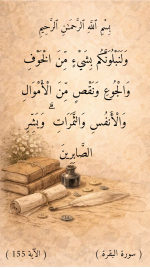 بِسْمِ اللَّهِ الرَّحْمَٰنِ الرَّحِيمِ
وَلَنَبْلُوَنَّكُم بِشَيْءٍ مِّنَ الْخَوْفِ
وَالْجُوعِ وَنَقْصٍ مِّنَ الْأَمْوَالِ
وَالْأَنفُسِ وَالثَّمَرَاتِ ۗ وَبَشِّرِ
الصَّابِرِينَ
( سورة البقرة ) ( الآية 155 )